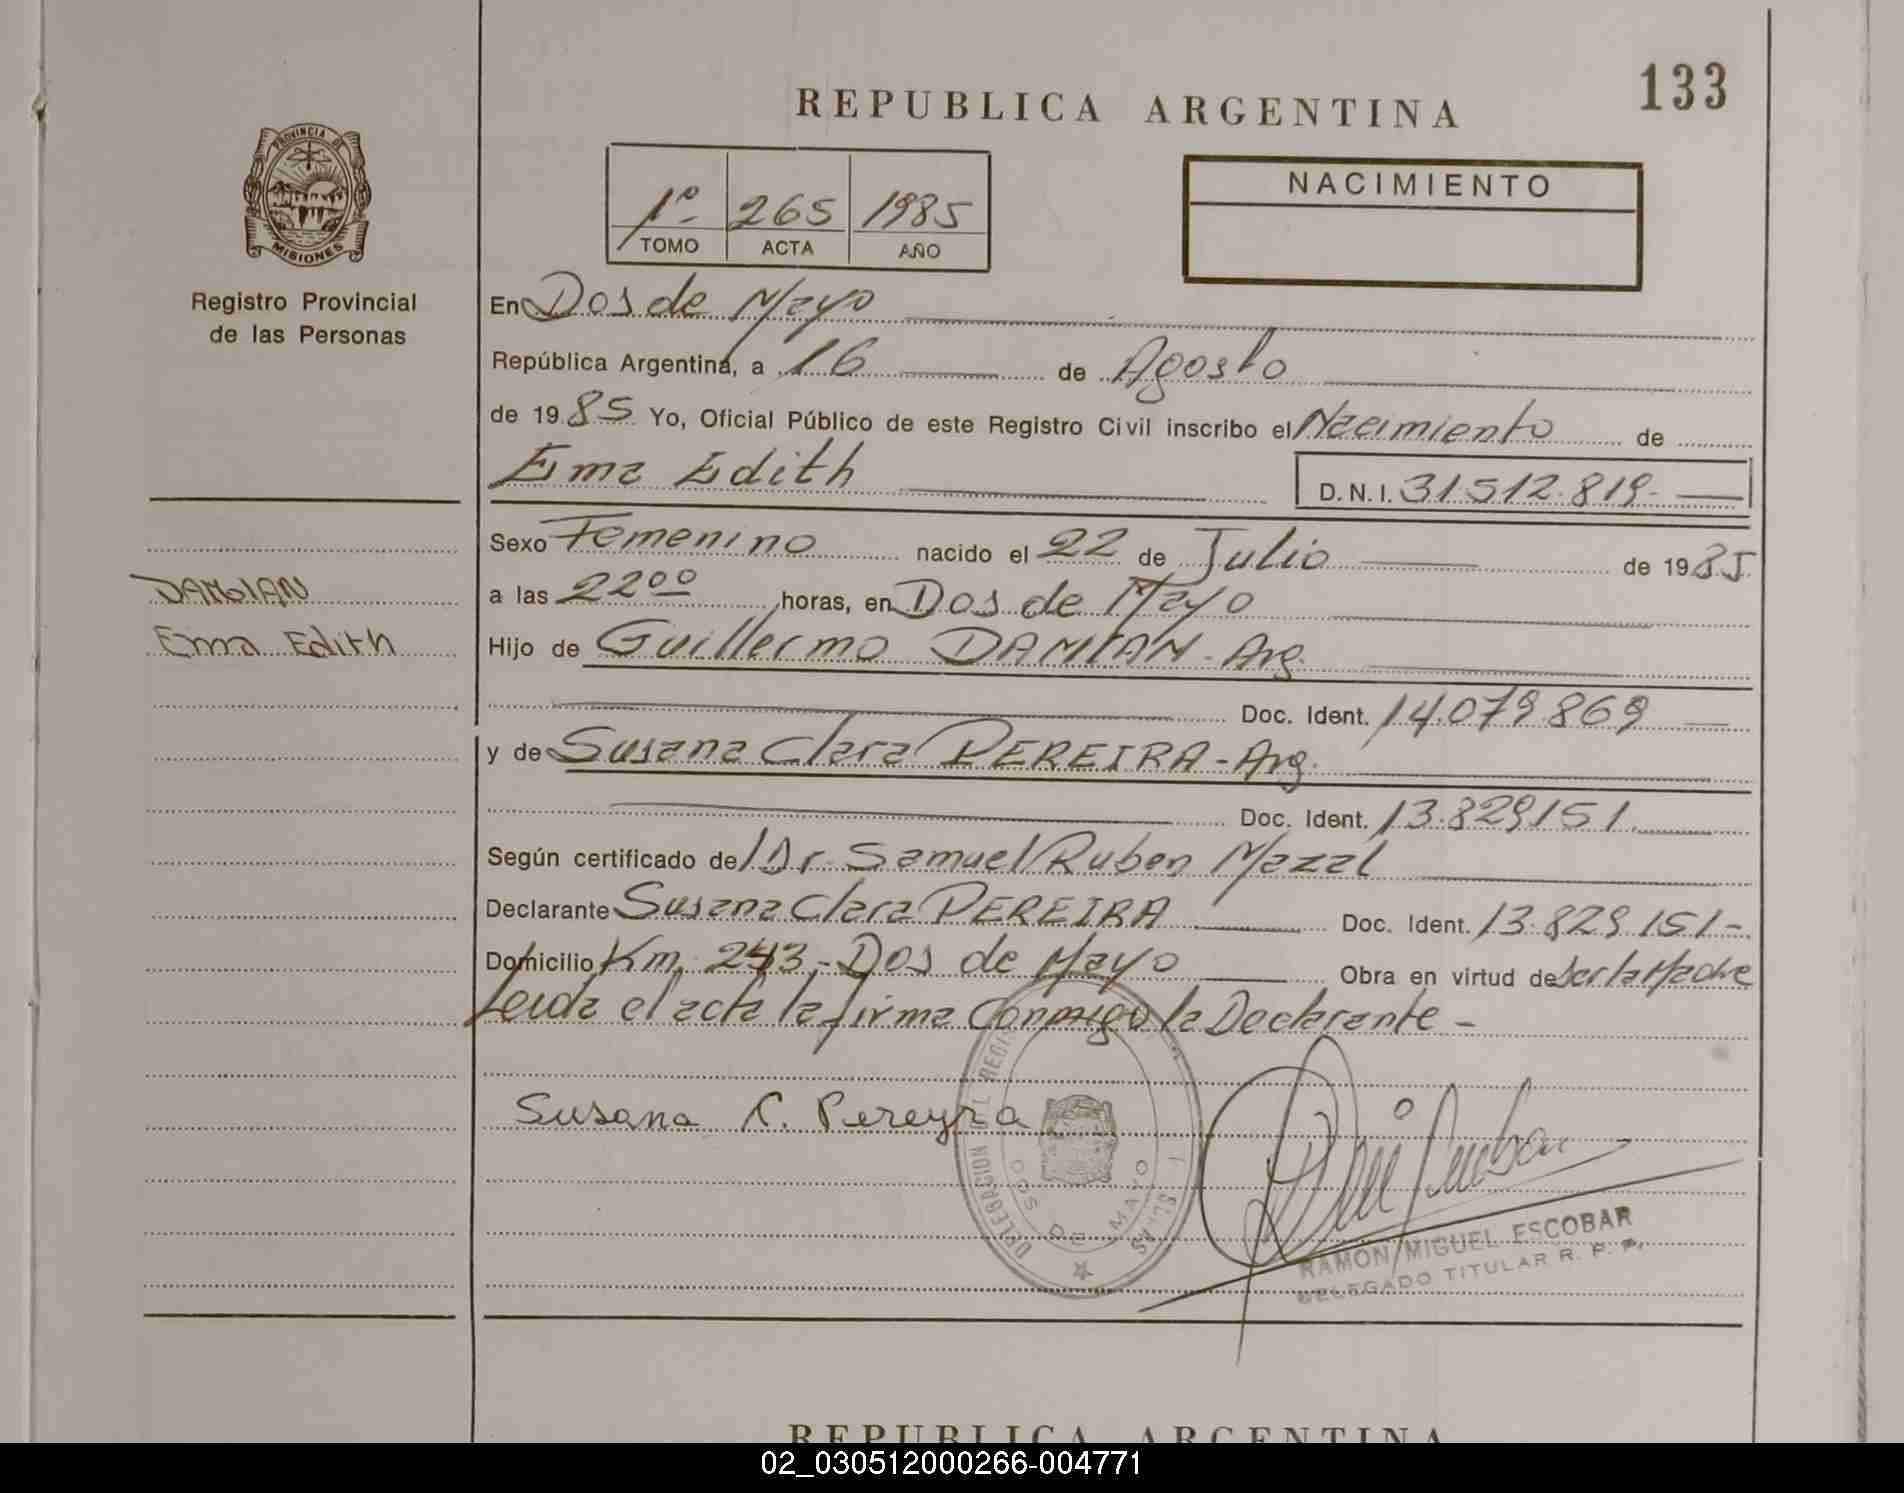 133
REPUBLICA ARGENTINA
PROVINCIA DE
MISIONES
Registro Provincial
de las Personas
1º- 265 1985
TOMO ACTA AÑO
NACIMIENTO
En Dos de Mayo
República Argentina, a 16 de Agosto
de 1985 Yo, Oficial Público de este Registro Civil inscribo el Nacimiento de
Ema Edith D.N.I. 31.512.819.-
Sexo Femenino nacido el 22 de Julio de 1985
a las 22ºº horas, en Dos de Mayo
DAMIAN
Ema Edith
Hijo de Guillermo DAMIAN - Arg.
Doc. Ident. 14.079.869
y de Susana Clara PEREIRA - Arg.
Doc. Ident. 13.829.151.
Según certificado del Dr. Samuel Ruben Mazal
Declarante Susana Clara PEREIRA Doc. Ident. 13.829.151-
Domicilio Km. 243,- Dos de Mayo Obra en virtud de Ser la Madre
Leida el acta la firma Conmigo la Declarante -
Susana C. Pereyra
DELEGACION DEL REGI
DOS DE MAYO
RAMON MIGUEL ESCOBAR
DELEGADO TITULAR R. P. P.
REPUBLICA ARGENTINA
02_030512000266-004771